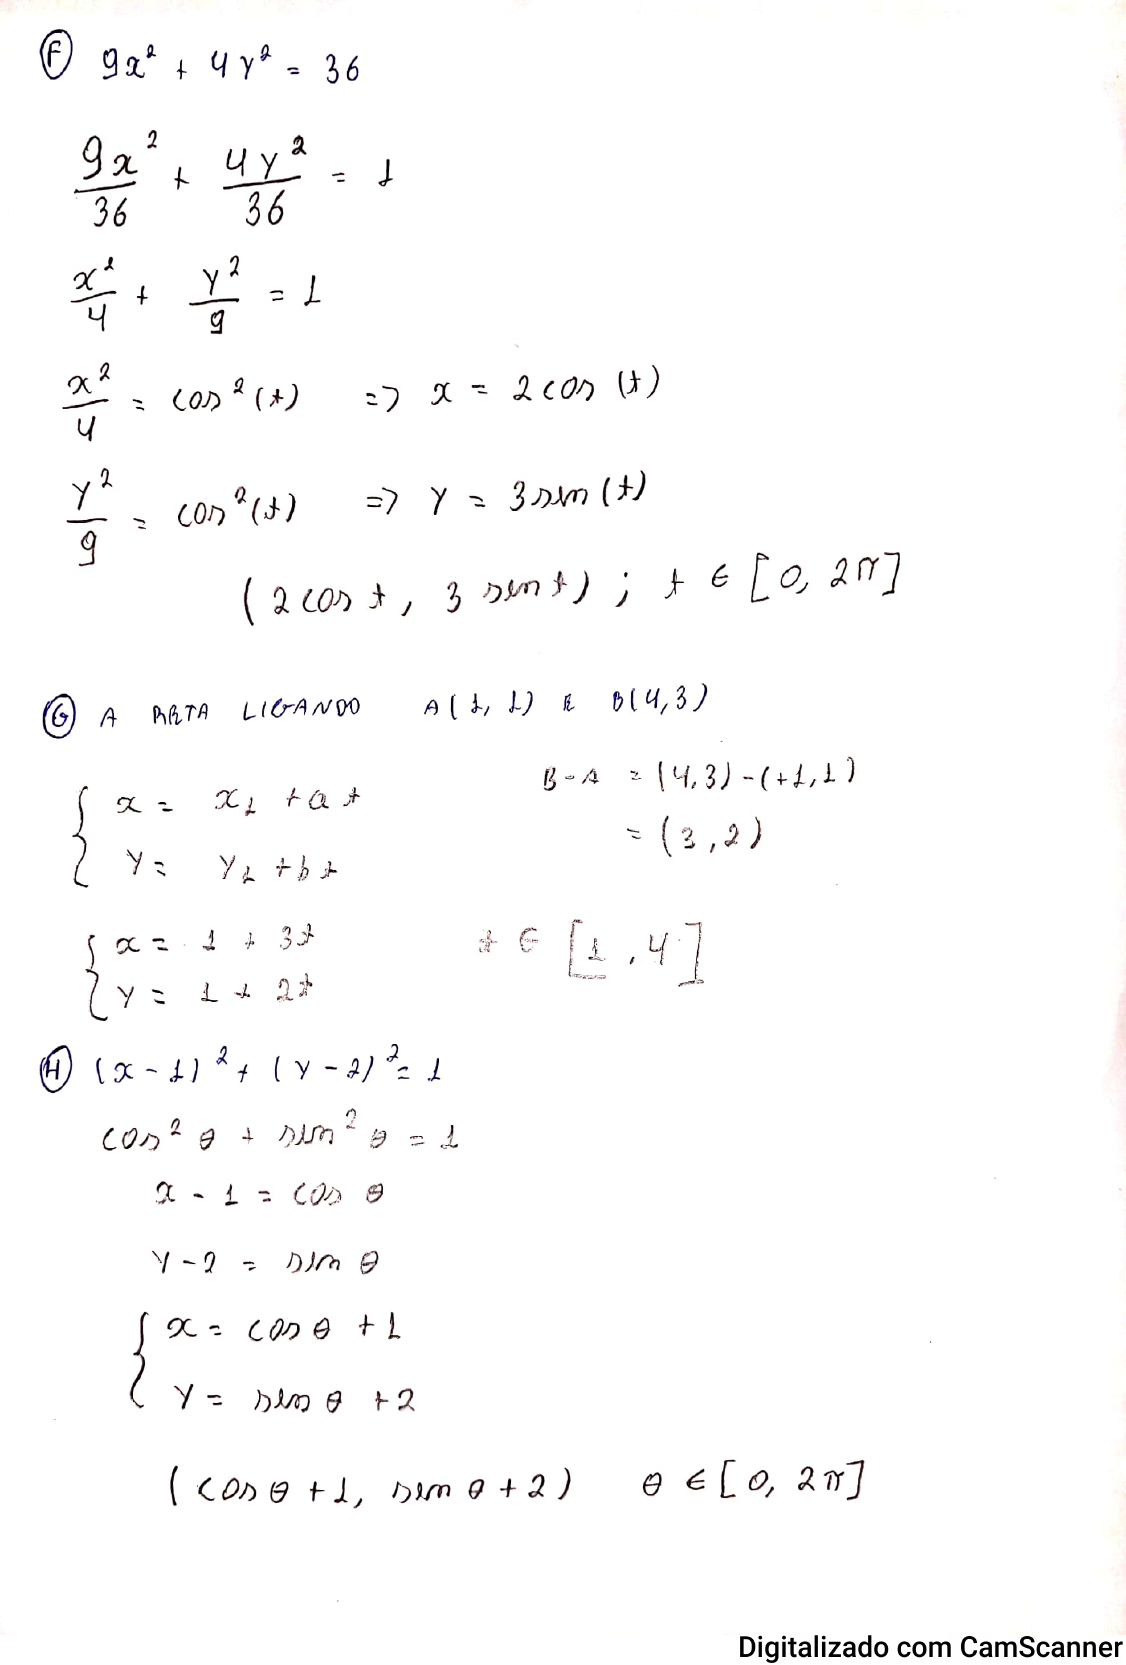 F 9x² + 4y² = 36
9x²/36 + 4y²/36 = 1
x²/4 + y²/9 = 1
x²/4 = cos²(t) => x = 2cos(t)
y²/9 = cos²(t) => y = 3sen(t)
(2cos t, 3 sent); t ∈ [0, 2π]
G A RETA LIGANDO A(1, 1) E B(4,3)
B-A = (4,3)-(+1,1)
= (3,2)
{ x = x₁ + at
y = y₁ + bt
{ x = 1 + 3t t ∈ [1,4]
y = 1 + 2t
H (x-1)² + (y-2)² = 1
cos²θ + sen²θ = 1
x - 1 = cos θ
y - 2 = sen θ
{ x = cos θ + 1
y = sen θ + 2
(cos θ + 1, sen θ + 2) θ ∈ [0, 2π]
Digitalizado com CamScanner